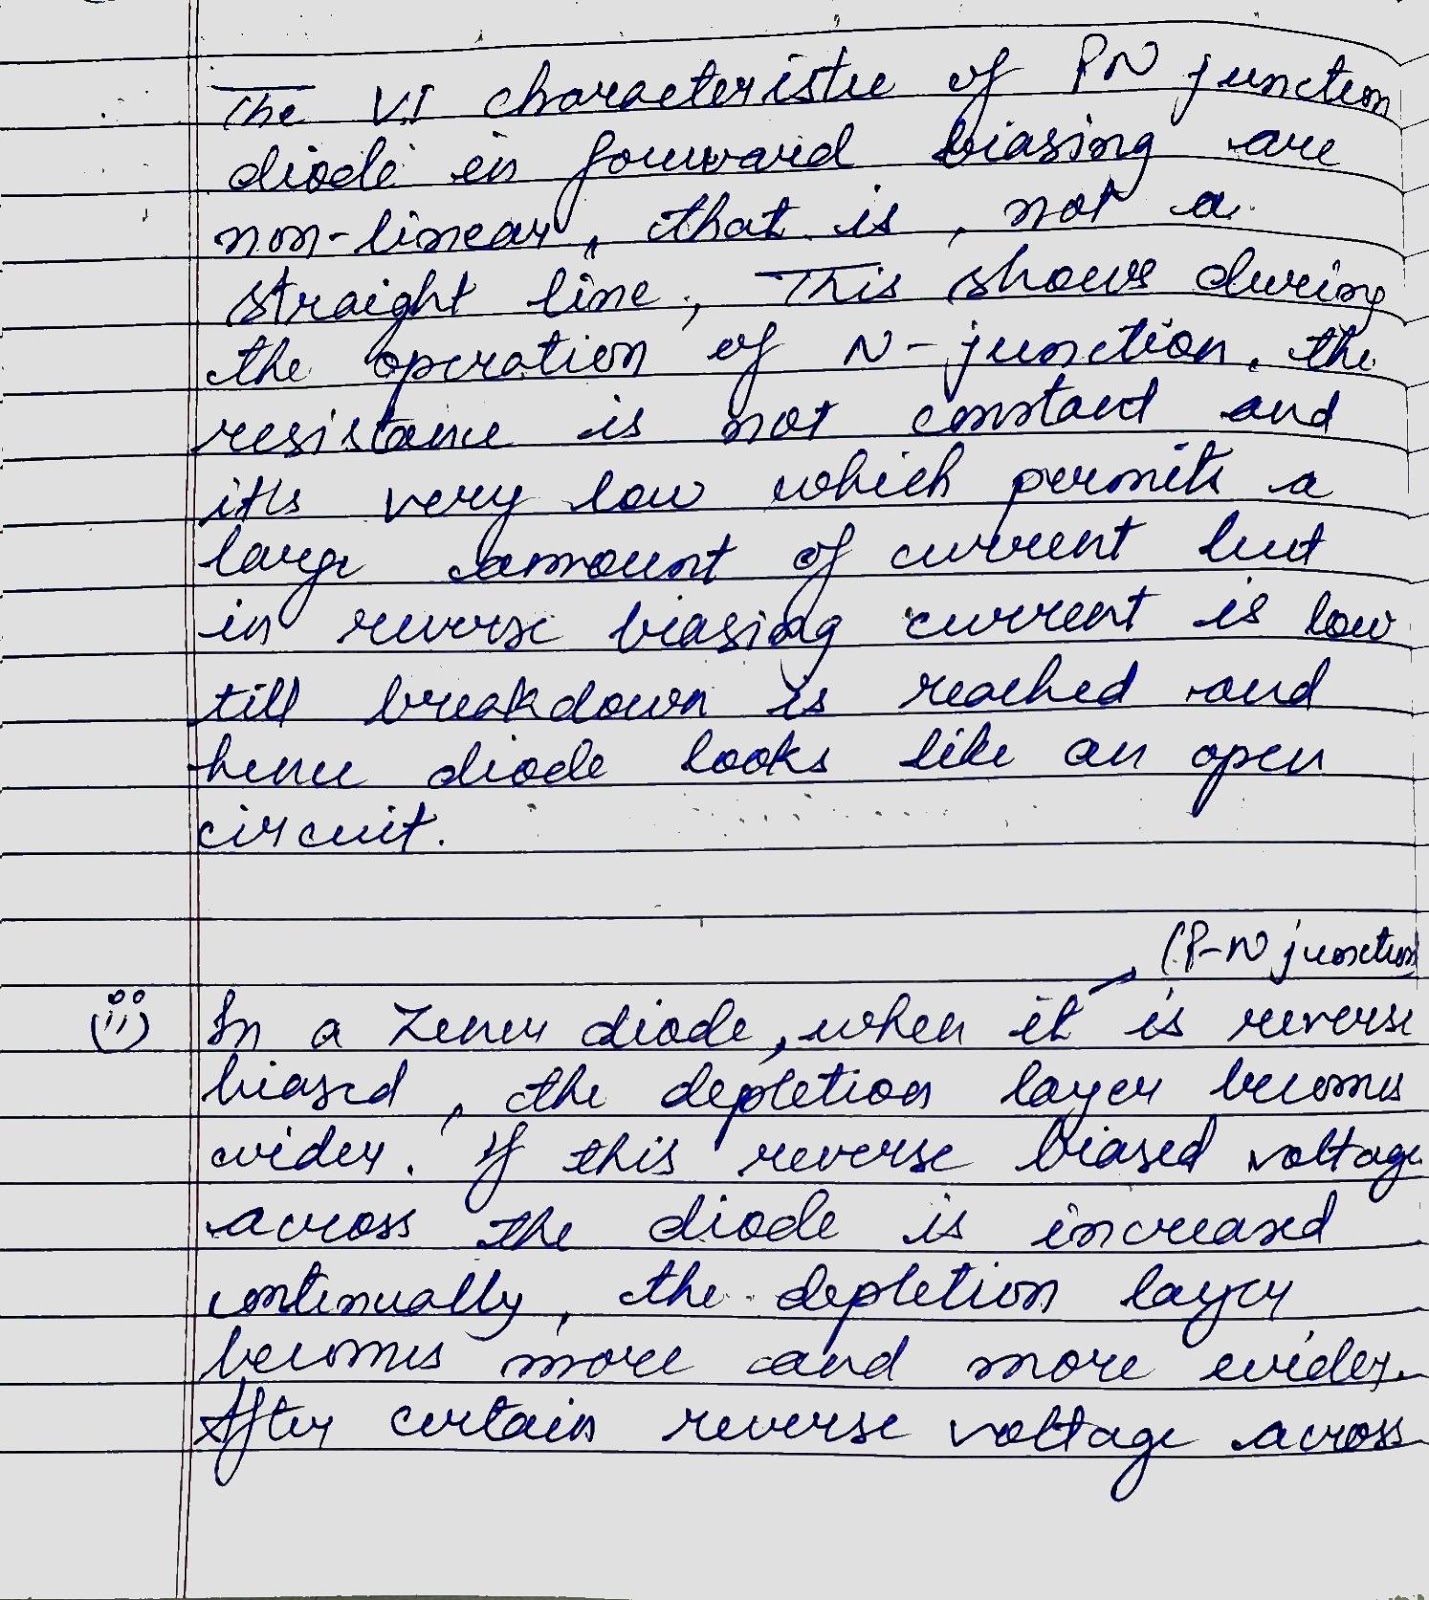 The V.I characteristic of PN junction
diode in forward biasing are
non-linear, that is, not a
straight line, This shows during
the operation of N-junction, the
resistance is not constant and
it's very low which permits a
large amount of current but
in reverse biasing current is low
till breakdown is reached and
hence diode looks like an open
circuit.
(P-N junction)
(ii) In a Zener diode, when it is reverse
biased, the depletion layer becomes
wider. If this reverse biased voltage
across the diode is increased
continually, the depletion layer
becomes more and more wider.
After certain reverse voltage across